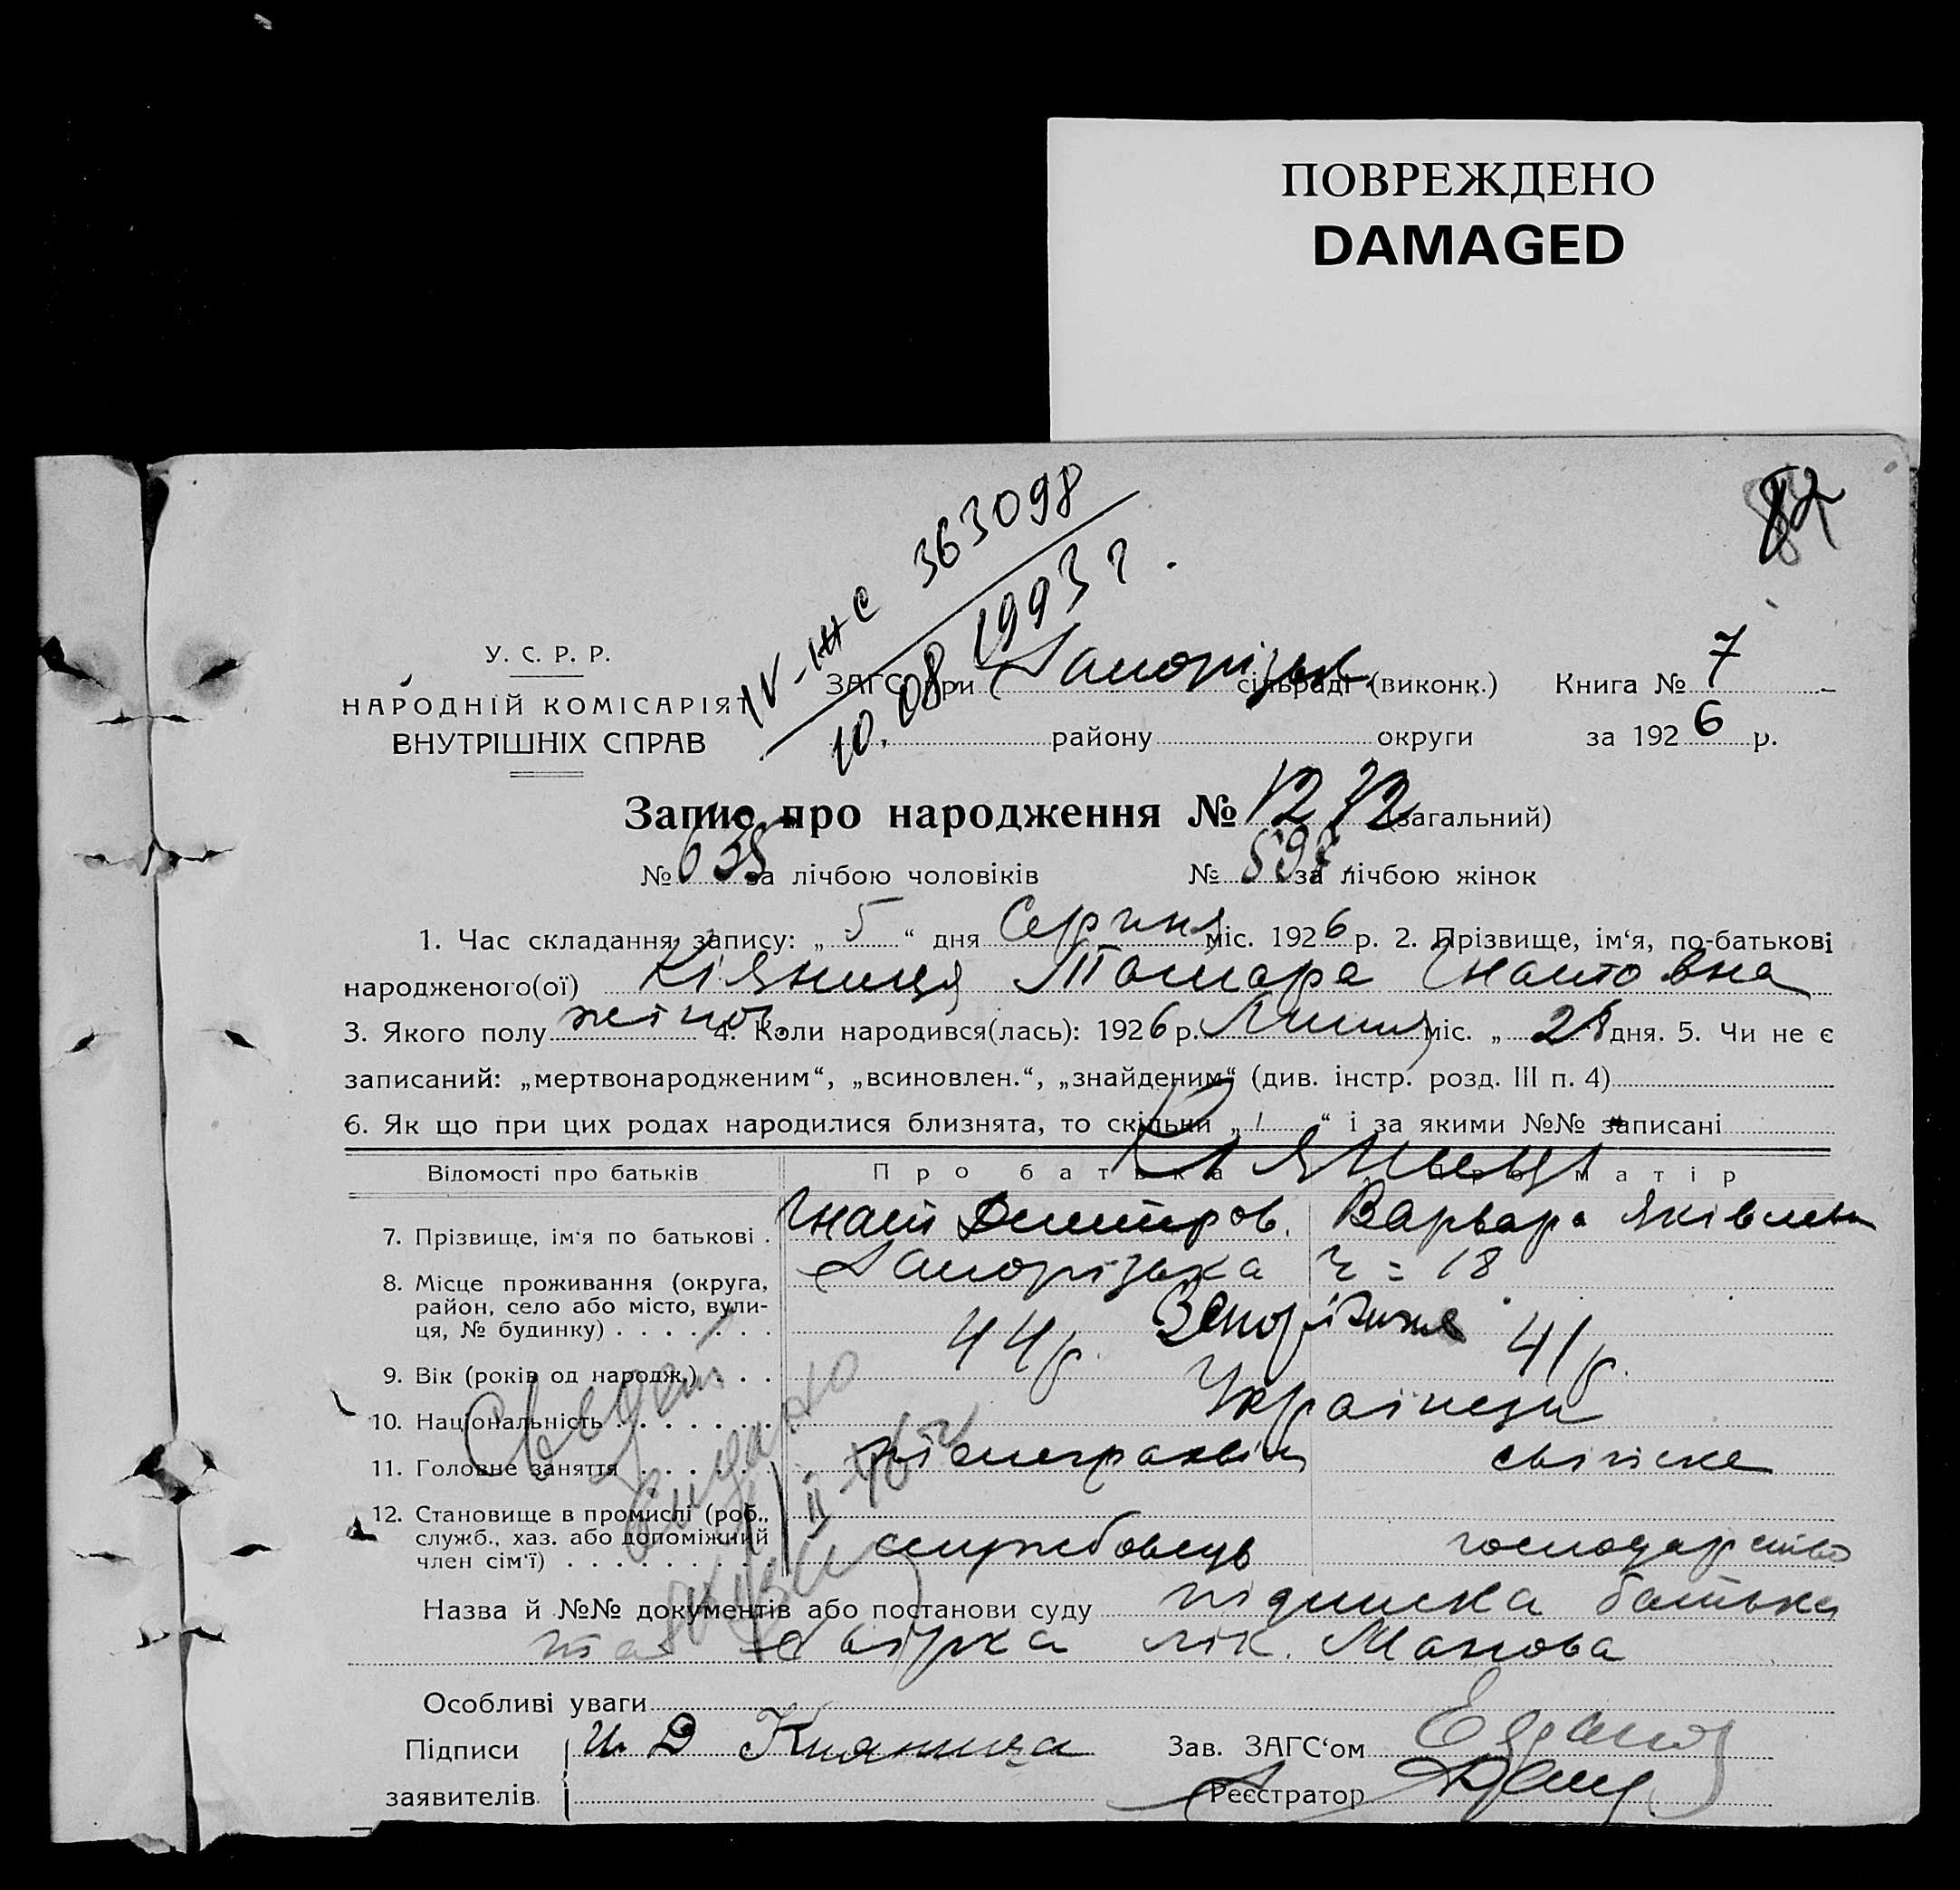 ПОВРЕЖДЕНО
DAMAGED
IV-ЖС 363098
10.08.1993 г.
У. С. Р. Р.
НАРОДНІЙ КОМІСАРІЯТ
ВНУТРІШНІХ СПРАВ
ЗАГС при Запорізьк. сільраді (виконк.) Книга № 7
району округи за 1926 р.
Запис про народження № 1272 (загальний)
№ 635 за лічбою чоловіків № за лічбою жінок
1. Час складання запису: „5“ дня Серпня міс. 1926 р. 2. Прізвище, ім‘я, по-батькові
народженого(ої) Кіяниця Тамара Гнатовна
3. Якого полу жіноч. 4. Коли народився(лась): 1926 р. Липня міс. „28 дня. 5. Чи не є
записаний: „мертвонародженим“, „всиновлен.“, „знайденим“ (див. інстр. розд. III п. 4)
6. Як що при цих родах народилися близнята, то скільки „1“ і за якими №№ записані
Відомості про батьків Про батька Про матір
Кіяниці
7. Прізвище, ім‘я по батькові Гнат Дмитров. Варвара Яківлевн
8. Місце проживання (округа, Запорізька = 18
район, село або місто, вули-
ця, № будинку) Запоріжжя
9. Вік (років од народж.) 44 р. 41 р.
10. Національність Українци
11. Головне заняття телеграхвіст хатнє
12. Становище в промислі (роб.,
служб., хаз. або допоміжний службовець господарство
член сім‘ї)
Назва й №№ документів або постанови суду підписка батька
та довірка лік. Манова
Особливі уваги
Підписи И. Д Кияница Зав. ЗАГС‘ом
заявителів Реєстратор